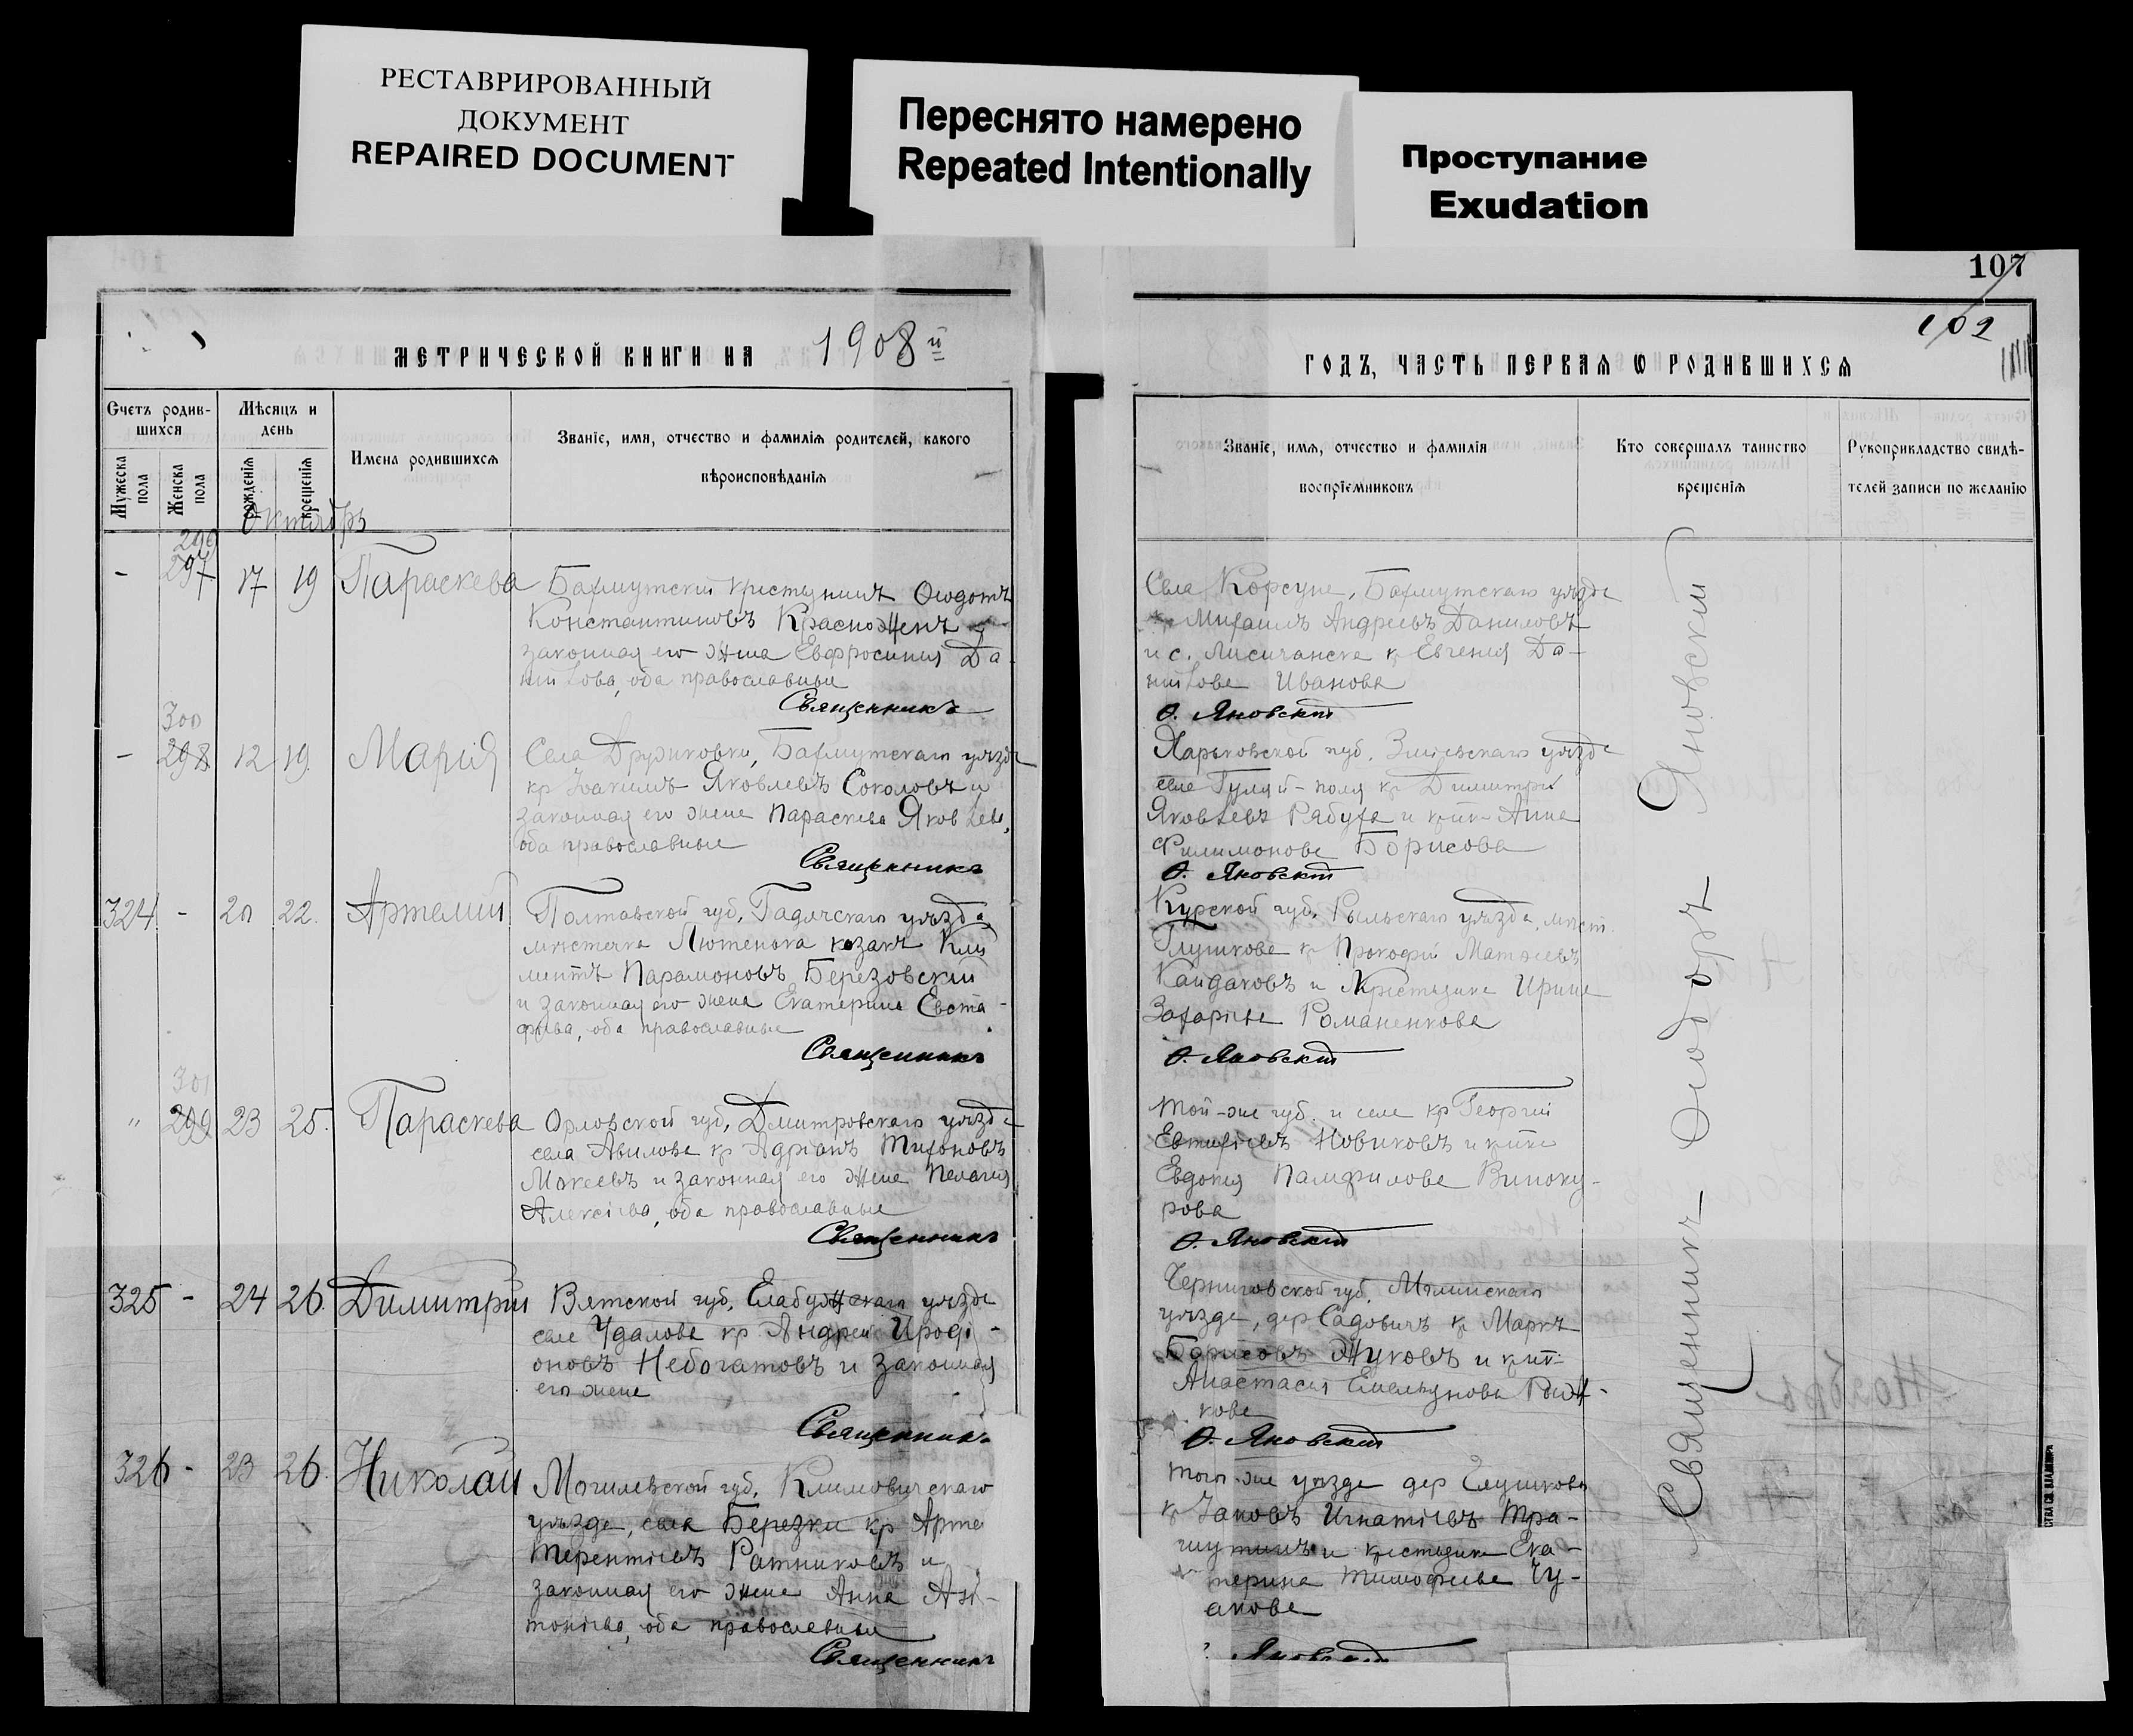 РЕСТАВРИРОВАННЫЙ
ДОКУМЕНТ
REPAIRED DOCUMENT
Переснято намерено
Repeated Intentionally
Проступание
Exudation
МЕТРИЧЕСКОЙ КНИГИ НА 1908й
Счетъ родив-
шихся
Мѣсяцъ и
день
Имена родившихся
Званіе, имя, отчество и фамилія родителей, какого
вѣроисповѣданія
Мужеска
пола
Женска
пола
рожденія
крещенія
Октябрь
299
- 297 17 19 Параскева
Бахмутскій крестьянинъ Ѳеодотъ
Константиновъ Красноженъ и
законная его жена Евфросинія Да-
ниилова, оба православные
Священникъ
300
- 298 12 19. Марія
Села Дружковки, Бахмутскаго уѣзда
кр Іоакимъ Яковлевъ Соколовъ и
законная его жена Параскева Яковлева,
оба православные
Священникъ
324 - 20 22. Артемій
Полтавской губ, Гадячскаго уѣзда
мѣстечка Лютенька козакъ Кли
ментъ Парамоновъ Березовскій
и законная его жена Екатерина Евста-
фьева, оба православные
Священникъ
301
" 299 23 25. Параскева
Орловской губ, Дмитровскаго уѣзда
села Авилова кр Адріанъ Тихоновъ
Мокеевъ и законная его жена Пелагія
Алексіева, оба православные
Священникъ
325 - 24 26. Димитрій
Вятской губ, Елабужскаго уѣзда
села Удалова кр Андрей Иродi-
оновъ Небогатовъ и законная
его жена
Священникъ
326 - 23 26. Николай
Могилевской губ, Климовичскаго
уѣзда, села Березки кр Арте
Терентіевъ Ратниковъ и
законная его жена Анна Ан-
тоніева, оба православные
Священникъ
107
102
ГОДЪ, ЧАСТЬ ПЕРВАЯ Ѡ РОДИВШИХСЯ
Званіе, имя, отчество и фамилія
воспріемниковъ
Кто совершалъ таинство
крещенія
Рукоприкладство свидѣ-
телей записи по желанію
Села Корсуне, Бахмутскаго уѣзда
кр Михаилъ Андреевъ Даниловъ
и с. Лисичанска кр Евгенія Да-
ниилова Иванова
Ѳ. Яновскій
Харьковской губ, Зміевскаго уѣзда
села Гуляй-поля кр Димитрій
Яковлевъ Рябуха и кр-ка Анна
Филимонова Борисова
Ѳ. Яновскій
Курской губ, Рыльскаго уѣзда, мѣст.
Глушкова кр Прокофій Матѳеевъ
Кандаковъ и Крестьянка Ирина
Захаріева Романенкова
Ѳ. Яновскій
Той-же губ. и села кр Георгій
Евтихіевъ Новиковъ и кр-ка
Евдокія Памфилова Виноку-
рова
Ѳ. Яновскій
Черниговской губ, Мглинскаго
уѣзда, дер Садовичъ кр Маркъ
Борисовъ Жуковъ и кр-ка
Анастасія Емельянова Рыж-
кова
Ѳ. Яновскій
Того-же уѣзда дер Елушкова
кр Іаковъ Игнатіевъ
и крестьянка Ека-
терина Тимофеева
Яновскій
Священникъ Ѳеодоръ Яновскій